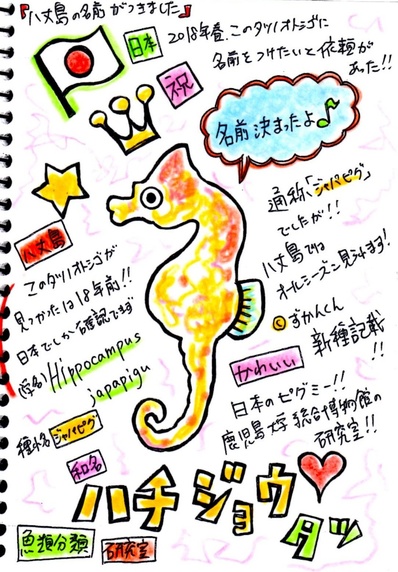 『八丈島の名前がつきました』
日本
祝
2018年春、このタツノオトシゴに
名前をつけたいと依頼が
あった!!
名前決まったよ♪
通称「ジャパピグ」
でしたが!!
八丈島では
オールシーズン見られます!
©ずかんくん
新種記載
!!
八丈島
このタツノオトシゴが
見つかったは18年前!!
日本でしか確認できず
学名 Hippocampus
japapigu
種小名 ジャパピグ
かわいい
日本のピグミー!!
鹿児島大学総合博物館の
研究室!!
和名
ハチジョウ
タツ
魚類分類
研究室